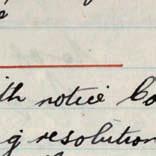 ith notice
g resolution